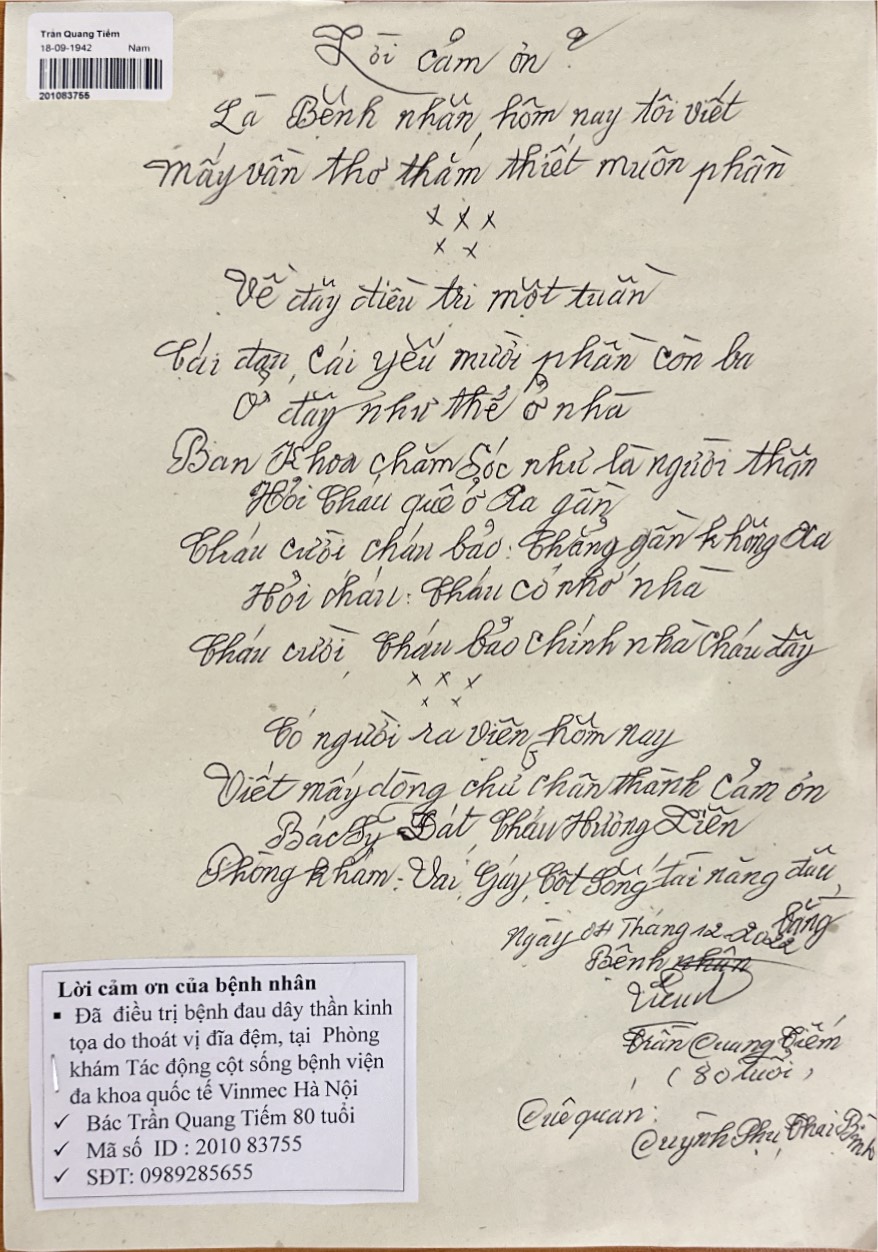 Trần Quang Tiếm
18-09-1942 Nam
201083755
Lời cảm ơn
Là Bệnh nhân, hôm nay tôi viết
mấy vần thơ thắm thiết muôn phần
x x x
x x
Về đây điều trị một tuần
Cái đau, cái yếu mười phần còn ba
Ở đây như thể ở nhà
Ban Khoa chăm sóc như là người thân
Hỏi Cháu quê ở xa gần
Cháu cười cháu bảo: Chẳng gần không xa
Hỏi cháu: Cháu có nhớ nhà
Cháu cười, Cháu bảo chính nhà cháu đây
x x x
x x
Có người ra viện hôm nay
Viết mấy dòng chữ chân thành cảm ơn
Bác Sỹ Bát Cháu Hường Liên
Phòng khám: Vai, Gáy, Cột Sống tài năng đâu
bằng
Ngày 04 Tháng 12-2022
Bệnh nhân
Trần Quang Tiếm
(80 tuổi)
Quê quán:
Quỳnh Phụ Thái Bình
Lời cảm ơn của bệnh nhân
▪ Đã điều trị bệnh đau dây thần kinh
tọa do thoát vị đĩa đệm, tại Phòng
khám Tác động cột sống bệnh viện
đa khoa quốc tế Vinmec Hà Nội
✓ Bác Trần Quang Tiếm 80 tuổi
✓ Mã số ID : 2010 83755
✓ SĐT: 0989285655